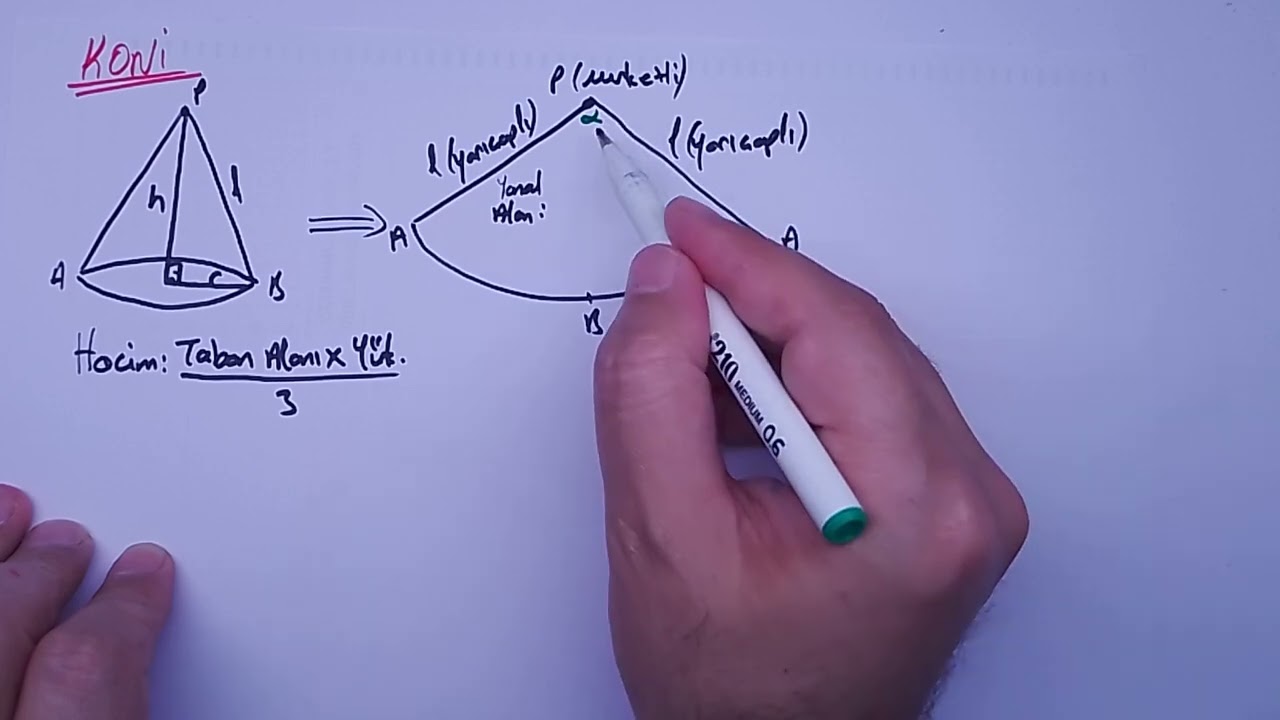 KONİ
P
h
l
A
r
B
Hacim: Taban Alanı x Yük.
3
P (merkezli)
α
l (yarıçaplı)
l (yarıçaplı)
Yanal
Alan:
A
A
B
MEDIUM 0.6